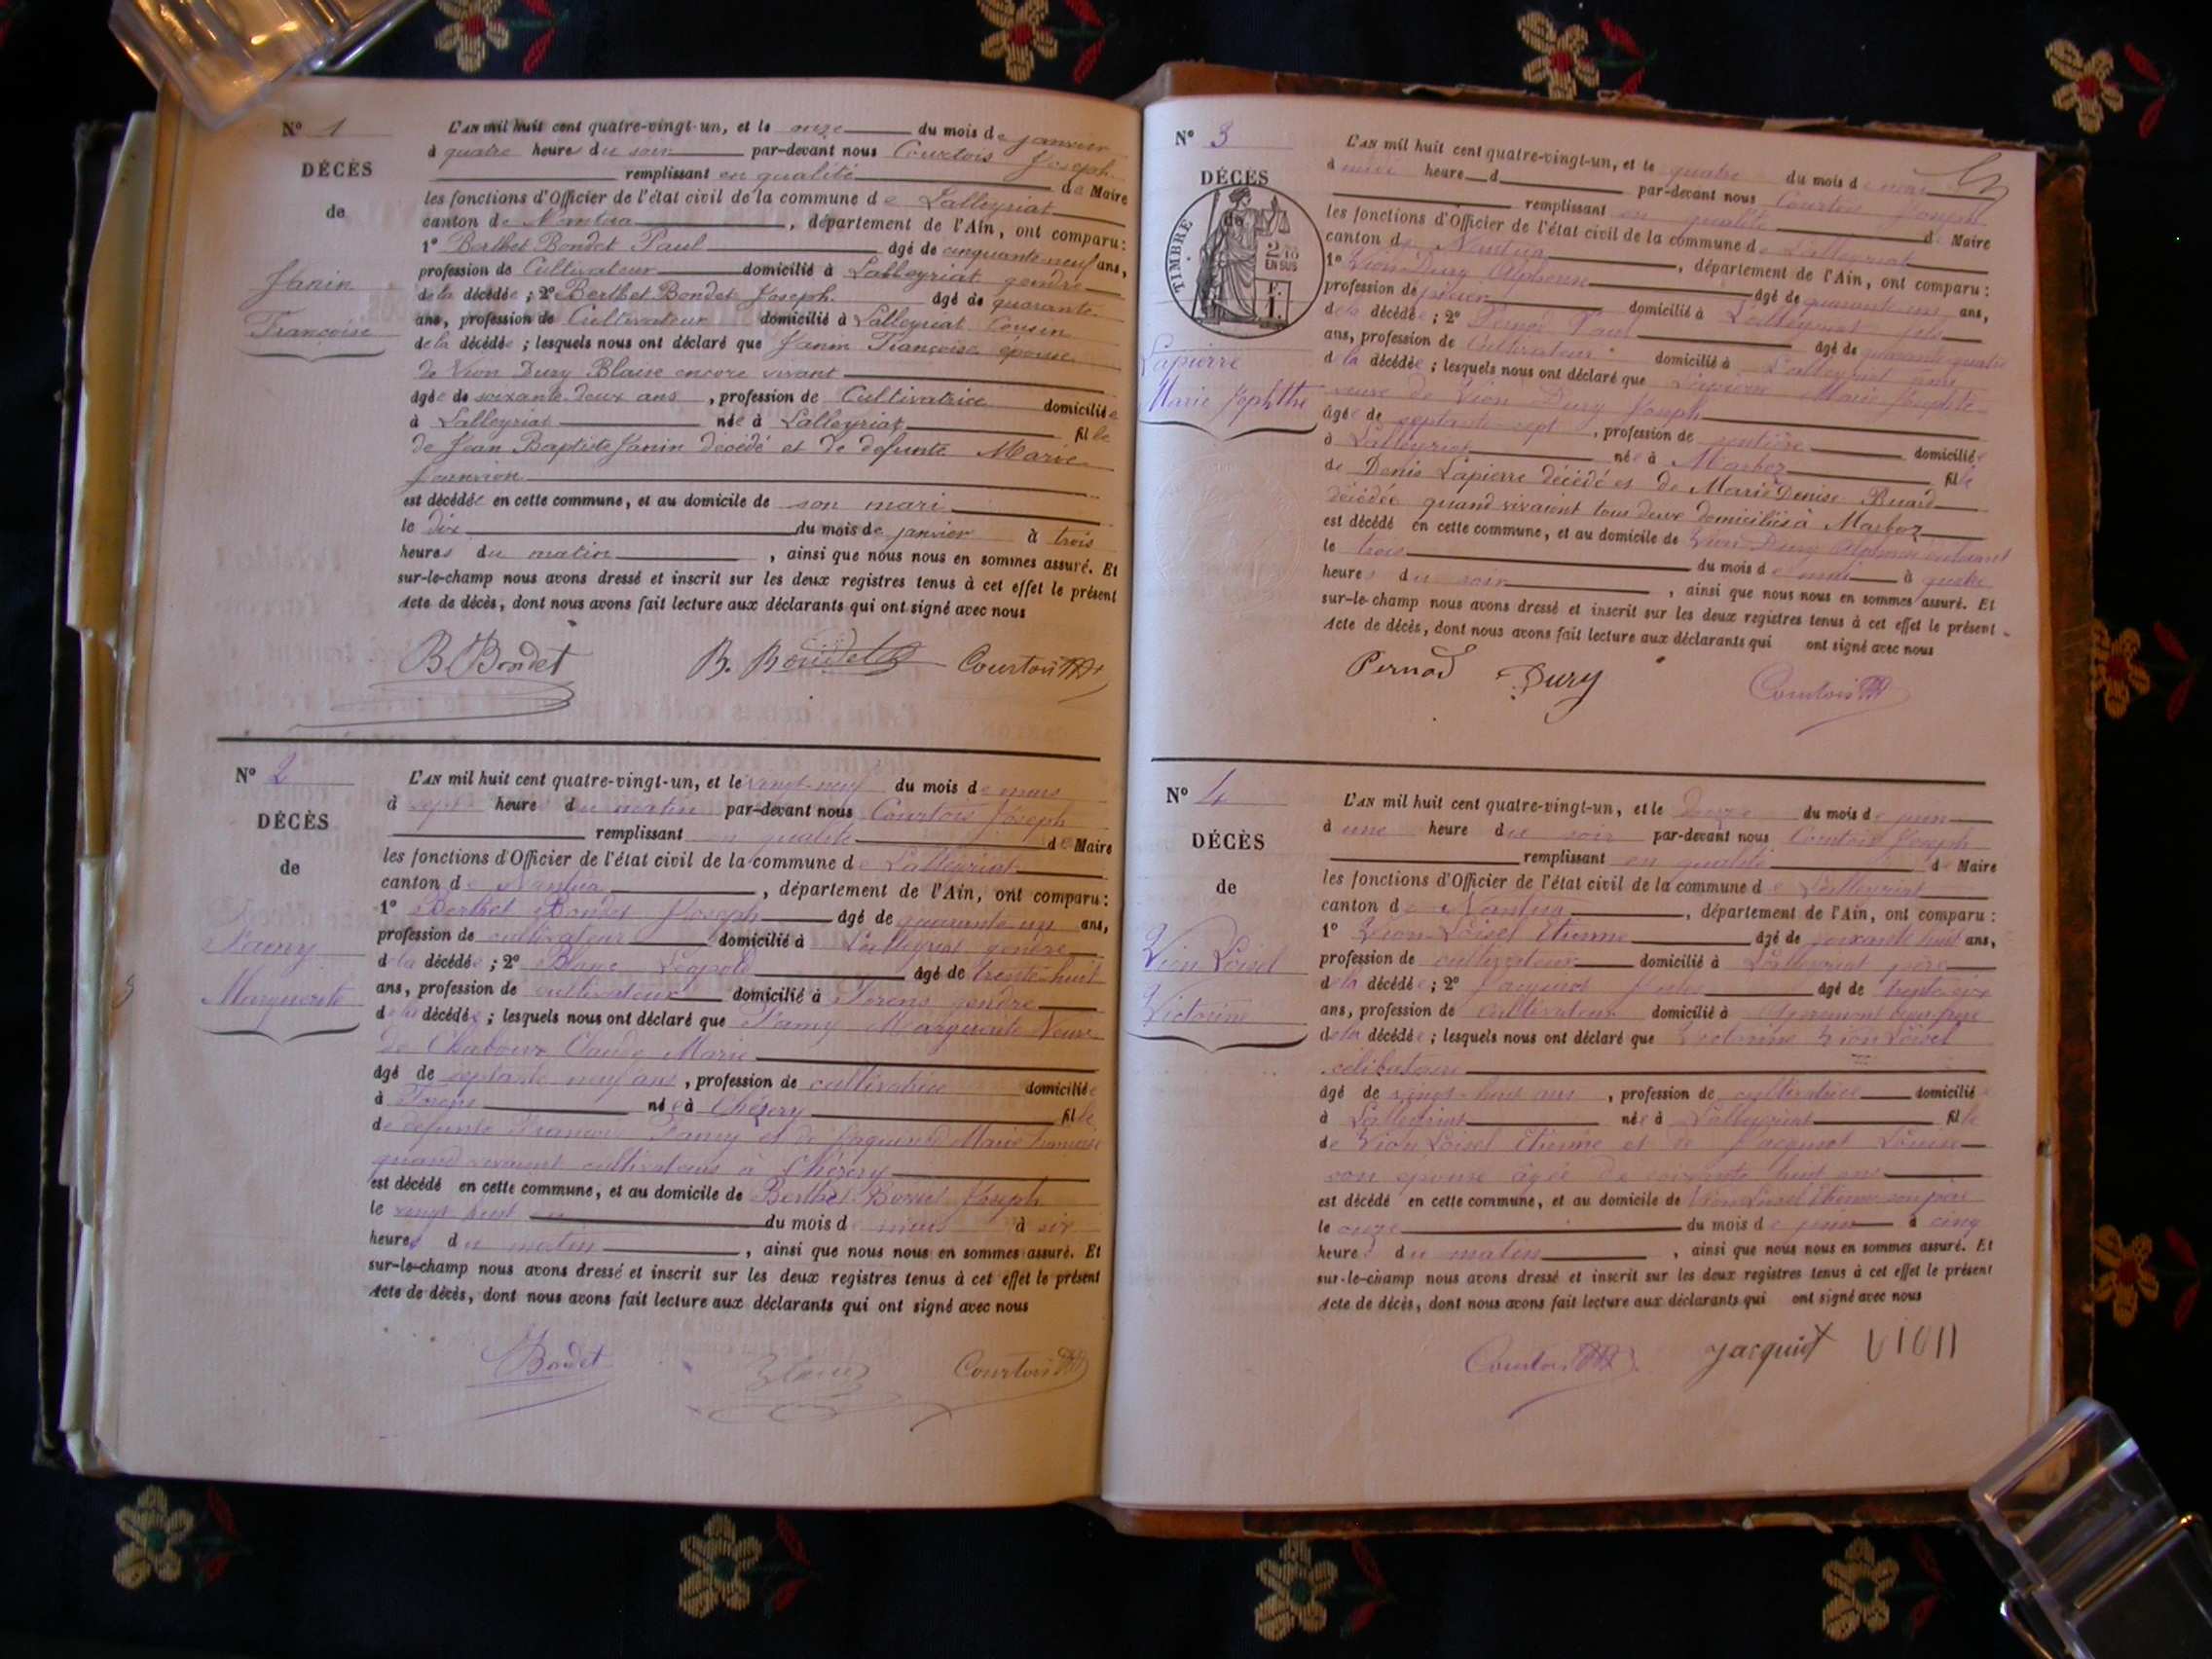 N° 1
DÉCÈS
de
Janin
Françoise
L'AN mil huit cent quatre-vingt-un, et le onze du mois de janvier
à quatre heures du soir par-devant nous Courtois Joseph
remplissant en qualité de Maire
les fonctions d'Officier de l'état civil de la commune de Lalleyriat
canton de Nantua, département de l'Ain, ont comparu:
1° Berthet Bondet Paul âgé de cinquante neuf ans,
profession de Cultivateur domicilié à Lalleyriat gendre
de la décédée; 2° Berthet Bondet Joseph. âgé de quarante
ans, profession de Cultivateur domicilié à Lalleyriat Cousin
de la décédée; lesquels nous ont déclaré que Janin Françoise épouse
de Vion Dury Blaise encore vivant
âgée de soixante deux ans, profession de Cultivatrice domiciliée
à Lalleyriat née à Lalleyriat fille
de Jean Baptiste Janin décédé et de defunte Marie
est décédée en cette commune, et au domicile de son mari
le dix du mois de janvier à trois
heures du matin, ainsi que nous nous en sommes assuré. Et
sur-le-champ nous avons dressé et inscrit sur les deux registres tenus à cet effet le présent
Acte de décès, dont nous avons fait lecture aux déclarants qui ont signé avec nous
B Bondet B. Bondet Courtois
N° 2
DÉCÈS
de
Famy
Marguerite
L'AN mil huit cent quatre-vingt-un, et le vingt-neuf du mois de mars
à sept heures du matin par-devant nous Courtois Joseph
remplissant en qualité de Maire
les fonctions d'Officier de l'état civil de la commune de Lalleyriat
canton de Nantua, département de l'Ain, ont comparu:
1° Berthet Bondet Joseph âgé de quarante un ans,
profession de cultivateur domicilié à Lalleyriat gendre
de la décédée; 2° Blanc Léopold âgé de trente-huit
ans, profession de cultivateur domicilié à Forens gendre
de la décédée; lesquels nous ont déclaré que Famy Marguerite Veuve
de Claude Marie
âgé de septante neuf ans, profession de cultivatrice domiciliée
à Forens née à Chézery fille
de defunts François Famy et de Marie Françoise
quand vivaient cultivateurs à Chézery
est décédé en cette commune, et au domicile de Berthet Bondet Joseph
le vingt huit du mois de mars à six
heures du matin, ainsi que nous nous en sommes assuré. Et
sur-le-champ nous avons dressé et inscrit sur les deux registres tenus à cet effet le présent
Acte de décès, dont nous avons fait lecture aux déclarants qui ont signé avec nous
Bondet Blanc Courtois
N° 3
DÉCÈS
de
TIMBRE
2/10
EN SUS
F.
1.
Lapierre
Marie Jophthe
L'AN mil huit cent quatre-vingt-un, et le quatre du mois de mai
à midi heure d par-devant nous Courtois Joseph
remplissant en qualité de Maire
les fonctions d'Officier de l'état civil de la commune de Lalleyriat
canton de Nantua, département de l'Ain, ont comparu:
1° Vion Dury Alphonse âgé de quarante un ans,
profession de domicilié à Lalleyriat fils
de la décédée; 2° Pernod Paul âgé de quarante quatre
ans, profession de Cultivateur domicilié à Lalleyriat
de la décédée; lesquels nous ont déclaré que Lapierre Marie Jophthe
veuve de Vion Dury Joseph
âgée de septante sept, profession de rentière domiciliée
à Lalleyriat née à Marboz fille
de Denis Lapierre décédé et de Marie Denise Buard
décédée quand vivaient tous deux domiciliés à Marboz
est décédé en cette commune, et au domicile de Vion Dury Alphonse
le trois du mois de mai à quatre
heures du soir, ainsi que nous nous en sommes assuré. Et
sur-le-champ nous avons dressé et inscrit sur les deux registres tenus à cet effet le présent
Acte de décès, dont nous avons fait lecture aux déclarants qui ont signé avec nous
Pernod Dury Courtois
N° 4
DÉCÈS
de
Vion Loisel
Victorine
L'AN mil huit cent quatre-vingt-un, et le Douze du mois de juin
à une heure du soir par-devant nous Courtois Joseph
remplissant en qualité de Maire
les fonctions d'Officier de l'état civil de la commune de Lalleyriat
canton de Nantua, département de l'Ain, ont comparu:
1° Vion Loisel Etienne âgé de soixante huit ans,
profession de cultivateur domicilié à Lalleyriat père
de la décédée; 2° Jacquiot Jules âgé de
ans, profession de cultivateur domicilié à Apremont beau frère
de la décédée; lesquels nous ont déclaré que Victorine Vion Loisel
célibataire
âgé de vingt-huit ans, profession de cultivatrice domiciliée
à Lalleyriat née à Lalleyriat fille
de Vion Loisel Etienne et de Jacquiot Louise
son épouse âgée de soixante huit ans
est décédé en cette commune, et au domicile de Vion Loisel Etienne son père
le onze du mois de juin à cinq
heures du matin, ainsi que nous nous en sommes assuré. Et
sur-le-champ nous avons dressé et inscrit sur les deux registres tenus à cet effet le présent
Acte de décès, dont nous avons fait lecture aux déclarants qui ont signé avec nous
Courtois Jacquiot VION